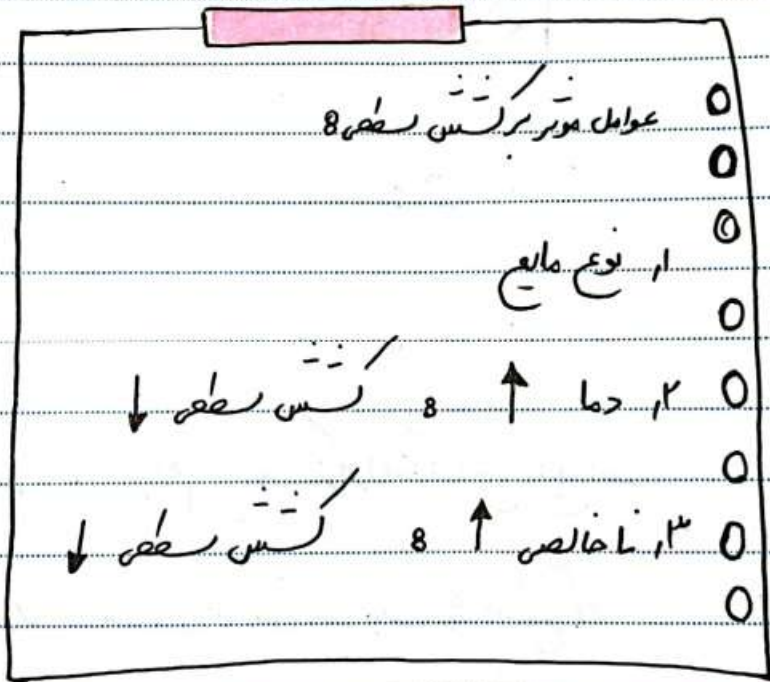 عوامل موثر بر کشش سطحی :
۱. نوع مایع
۲. دما ↑ : کشش سطحی ↓
۳. ناخالصی ↑ : کشش سطحی ↓